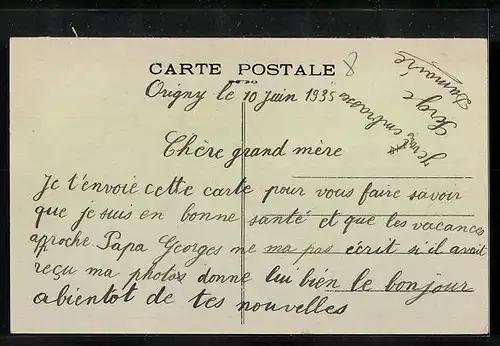 CARTE POSTALE
8
Origny le 10 Juin 1935
Chère grand mère
Je t'envoie cette carte pour vous faire savoir
que je suis en bonne santé et que les vacances
approche Papa Georges ne ma pas écrit si il avait
reçu ma photos donne lui bien le bonjour
abientot de tes nouvelles
Je vous embrasse
Serge
Dumairie